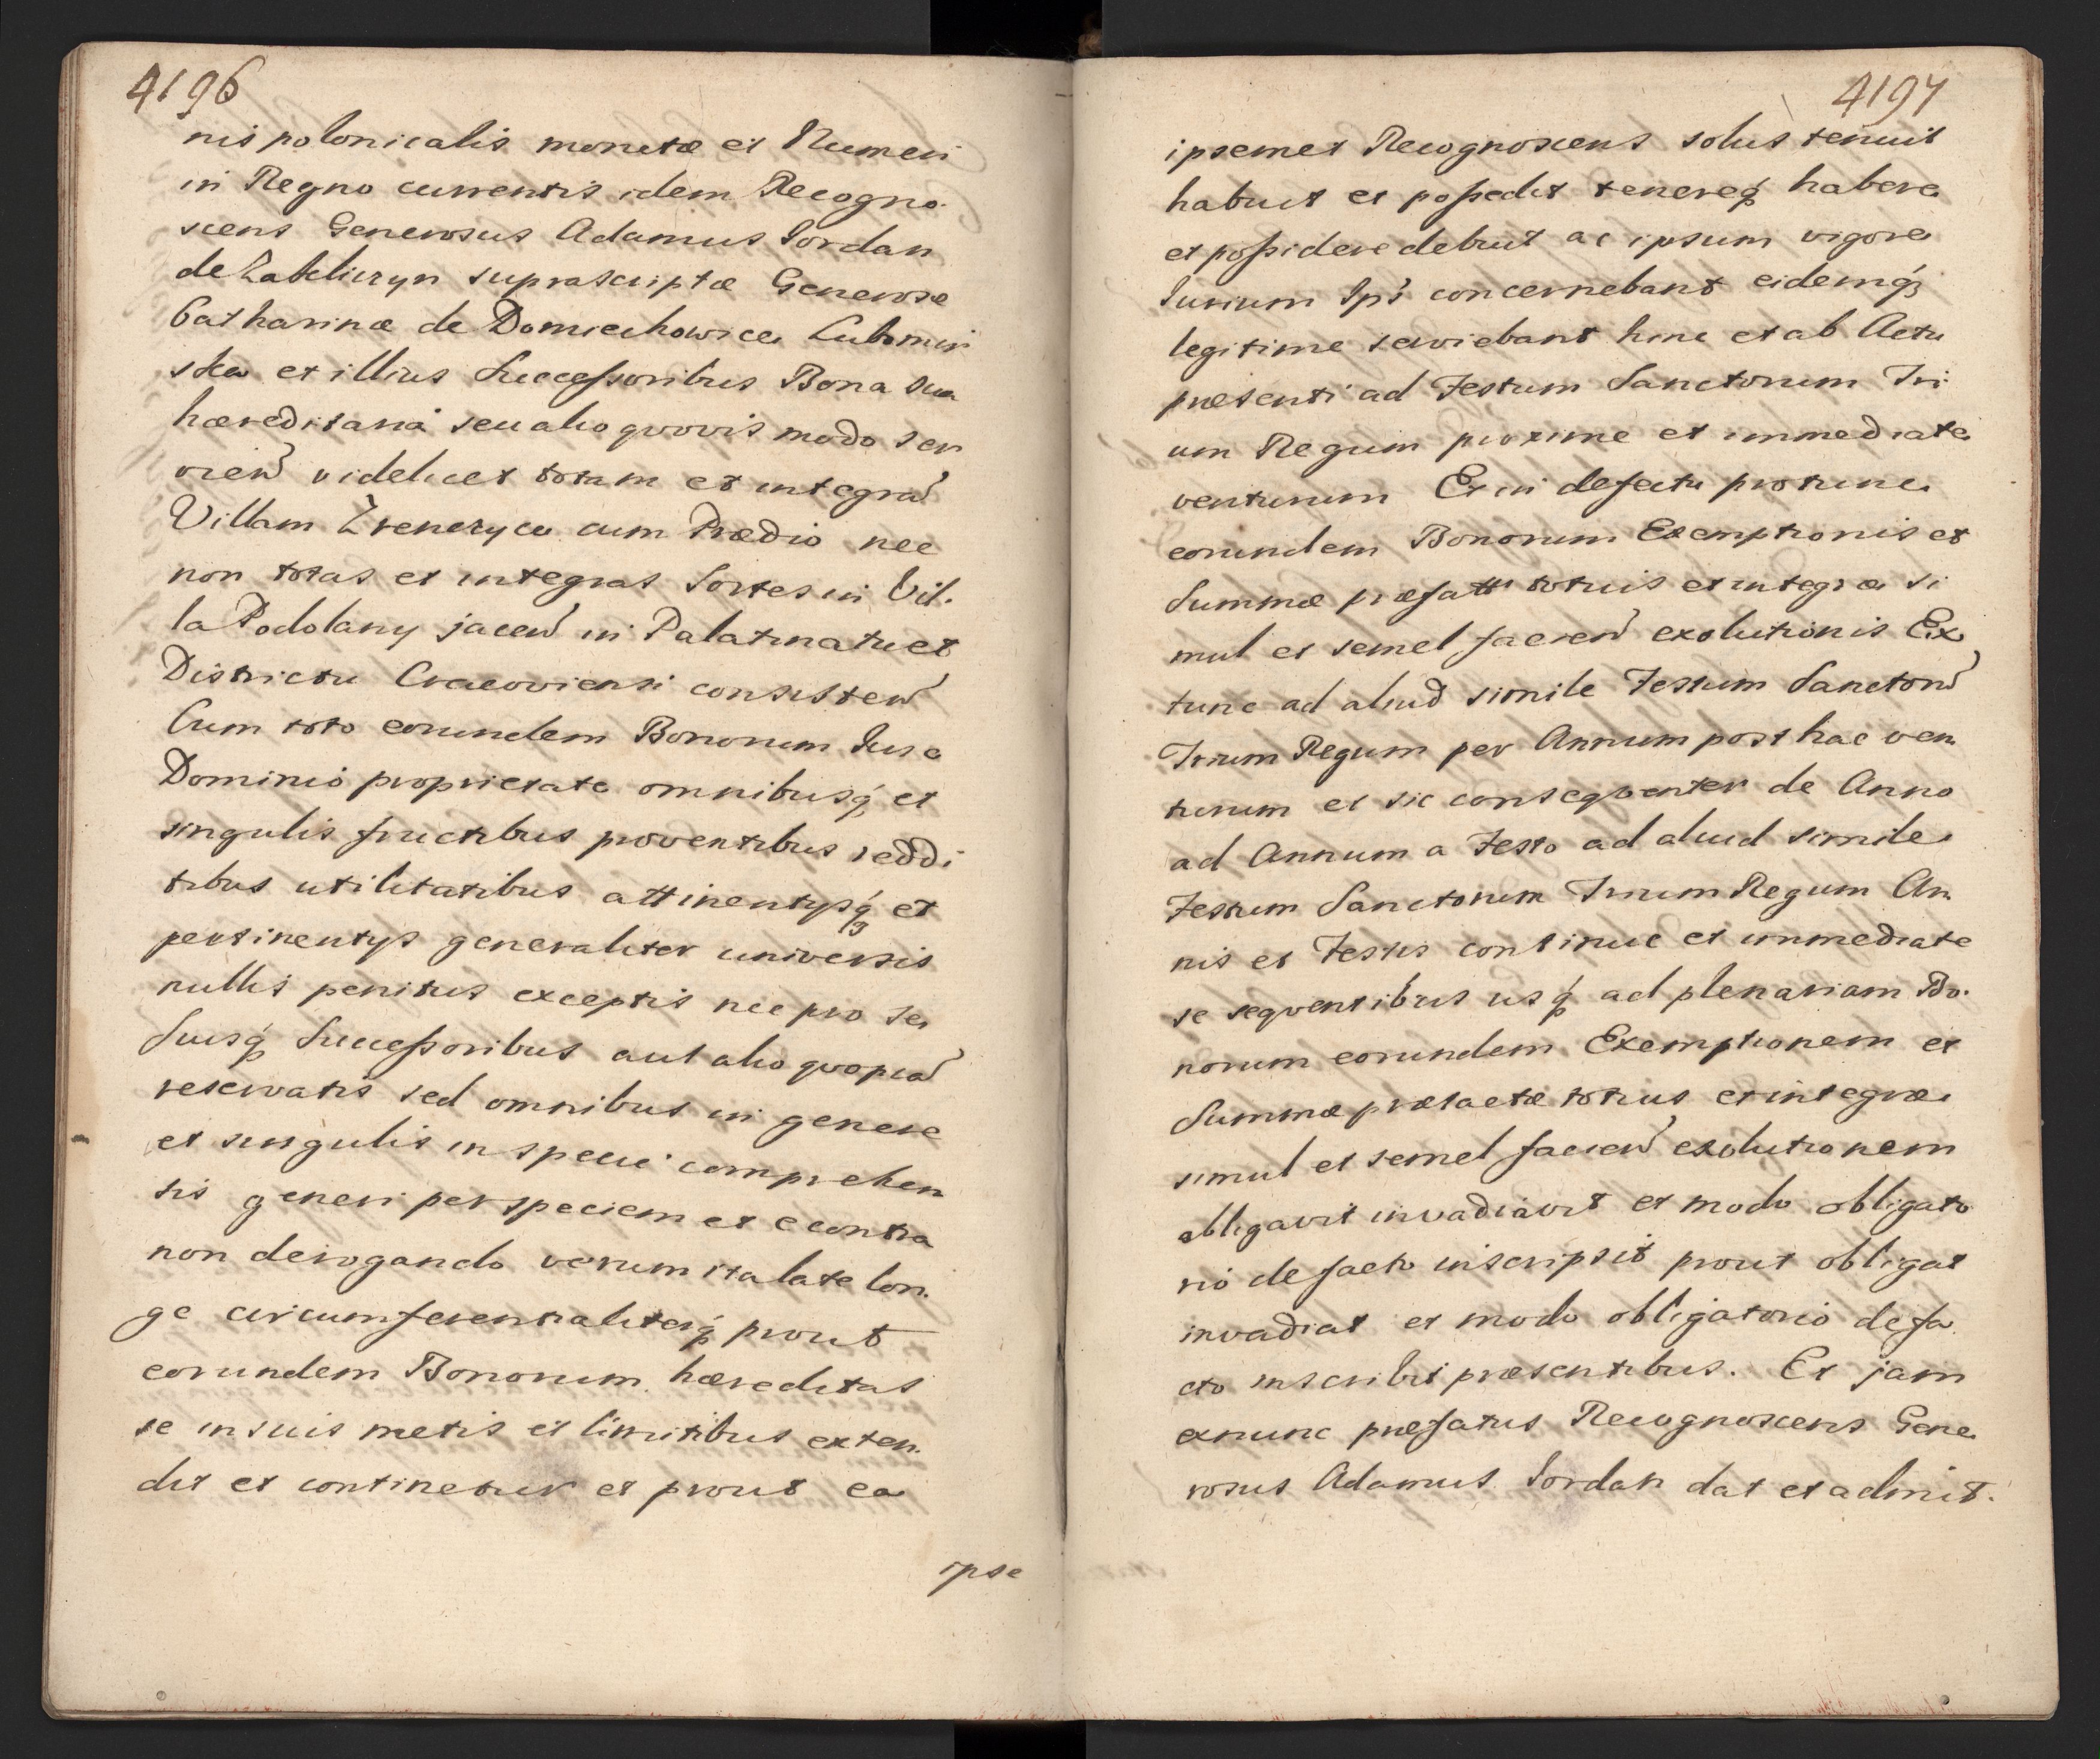 4196
nis polonicalis monetæ et Numeri
in Regno currentis idem Recogno
scens Generosus Adamus Iordan
de Zakliczyn suprascriptæ Generosæ
Catharinæ de Domiechowice Lubomir
ska et illius Successoribus Bona sua
hæreditaria seu alio quovis modo ser
vien videlicet totam et integra
Villam cum Prædio nec
non totas et integras Sortes in Vil.
la Podolany jacen in Palatinatu et
Districtu Cracoviensi consisten
Cum toto eorundem Bonorum Iure
Dominio proprietate omnibusq et
singulis fructibus proventibus reddi
tibus utilitatibus attinentysq et
pertinentys generaliter universis
nullis penitus exceptis nec pro se
Suisq Successoribus aut alio quopia
reservatis sed omnibus in genere
et singulis in specie comprehen
sis generi per speciem et e contra
non derogando verum ita late lon.
ge circumferentialiterq prout
eorundem Bonorum hæreditas
se in suis metis et limitibus exten.
dit et continetur et prout ea
ipse
4197
ipsemet Recognoscens solus tenuit
habuit et possedit tenereq habere
et possidere debuit ac ipsum vigore
Iurium Ips concernebant eidemq
legitime serviebant hinc et ab Actu
præsenti ad Festum Sanctorum Tri
um Regum proxime et immediate
venturum Et in defectu pro tunc
eorundem Bonorum Exemptionis et
Summæ præfatt totius et integræ si
mul et semel facien exolutionis Ex
tunc ad aliud simile Festum Sanctor
Trium Regum per Annum post hac ven
turum et sic consequenter de Anno
ad Annum a Festo ad aliud simile
Festum Sanctorum Trium Regum An.
nis et Festis continue et immediate
se sequentibus usq ad plenariam Bo.
norum eorundem Exemptionem et
Summæ prætactæ totius et integræ
simul et semel facien exolutionem
obligavit invadiavit et modo obligato
rio de facto inscripsit prout obligat
invadiat et modo obligatorio de fa
cto inscribit præsentibus. Et jam
exnunc præfatus Recognoscens Gene
rosus Adamus Iordan dat et admit.